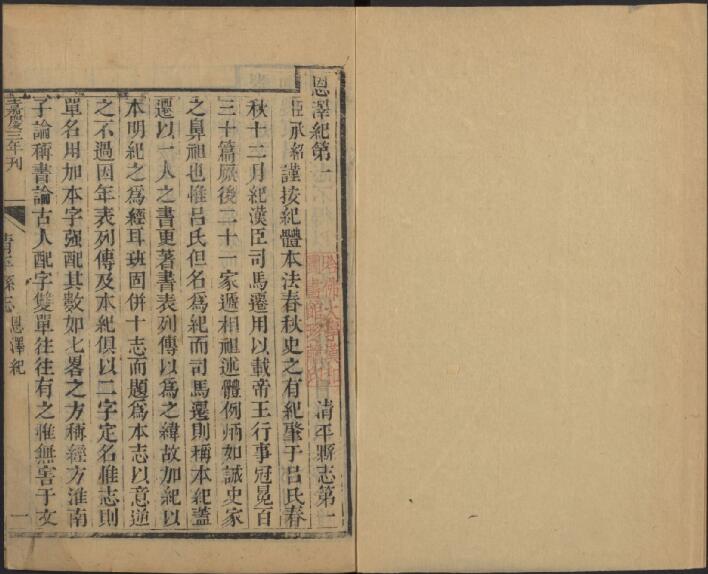 恩澤紀第一　清平縣志第二
臣承紹謹按紀體本法春秋史之有紀肇于呂氏春
秋十二月紀漢臣司馬遷用以載帝王行事冠冕百
三十篇厥後二十一家遞相祖述體例炳如誠史家
之鼻祖也惟呂氏但名爲紀而司馬遷則稱本紀蓋
遷以一人之書更著書表列傳以爲之緯故加紀以
本明紀之爲經耳班固併十志而題爲本志以意逆
之不過因年表列傳及本紀俱以二字定名惟志則
單名用加本字强配其數如七畧之方稱經方淮南
子論稱書論古人配字雙單往往有之雖無害于文
嘉慶三年刊
清平縣志
恩澤紀
一